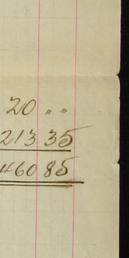 20 " "
213 35
460 85